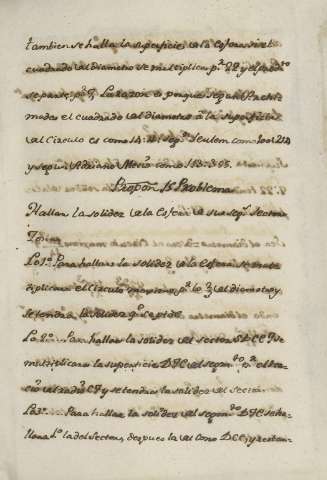 tambien se halla la superficie de la Esfera si el
cuadrado del diametro se multiplica pr. 22 y el prodto
se parte pr. 7. La razon es porque segun Archi
medes el cuadrado del diametro a la superficie
del Circulo es como 14: 11, segn. Ceulem como 100: 314
y segun Adriano Mecio como 113: 355.
Propon. 15 Problema
Hallar la solidez de la Esfera de sus segtos. sectores
Lo 1o. Para hallar la solidez de la Esfera se mul
tiplicara el Circulo maximo pr. lo 2/3 del diametro, y
se tendra la solidez qe. se pide.
Lo 2o. Para hallar la solidez del sector se
multiplicara la superficie del segmto. pr. el ter
cio del radio y se tendra la solidez del sector.
Lo 3o. Para hallar la solidez del segmto. se ha
llara pro. la del Sector, despues la del Cono y restan-